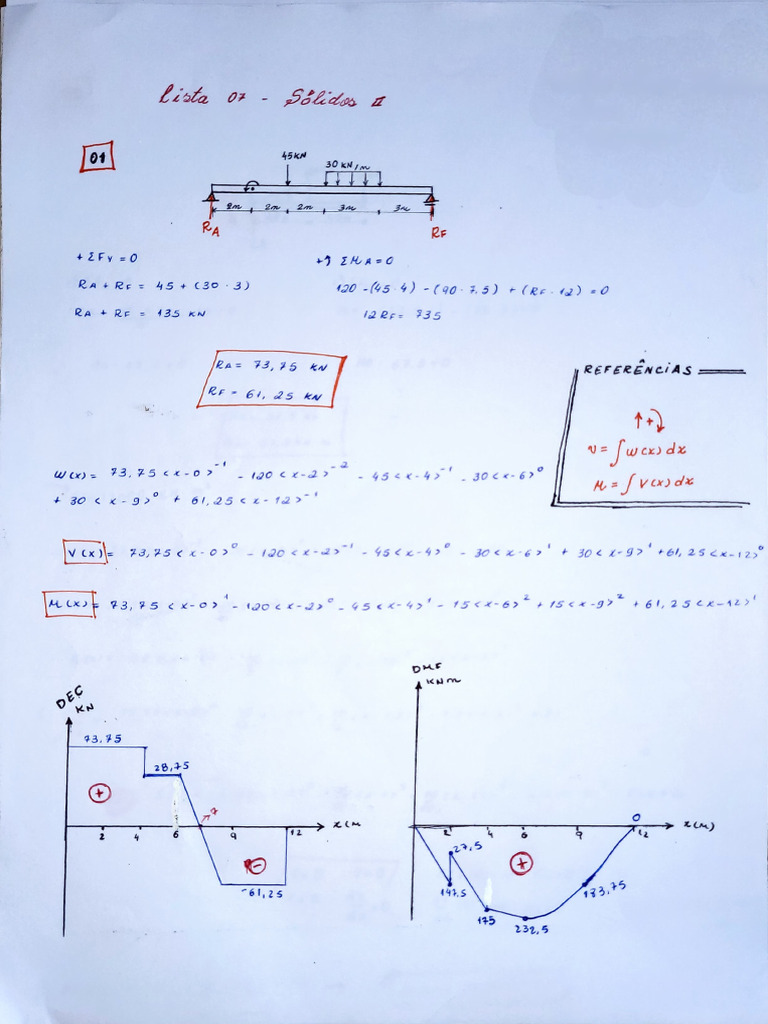 Lista 07 - Sólidos II
01
45 KN
30 KN/m
2m 2m 2m 3m 3m
RA RF
+ ΣFy = 0
RA + RF = 45 + (30 · 3)
RA + RF = 135 KN
+↑ ΣMA = 0
120 - (45·4) - (90·7.5) + (RF·12) = 0
12RF = 735
RA = 73,75 KN
RF = 61,25 KN
REFERÊNCIAS
↑+
v = ∫W(x)dx
M = ∫V(x)dx
W(x) = 73,75<x-0>⁻¹ - 120<x-2>⁻² - 45<x-4>⁻¹ - 30<x-6>⁰
+ 30<x-9>⁰ + 61,25<x-12>⁻¹
V(x) = 73,75<x-0>⁰ - 120<x-2>⁻¹ - 45<x-4>⁰ - 30<x-6>¹ + 30<x-9>¹ + 61,25<x-12>⁰
M(x) = 73,75<x-0>¹ - 120<x-2>⁰ - 45<x-4>¹ - 15<x-6>² + 15<x-9>² + 61,25<x-12>¹
DEC
KN
73,75
28,75
+
2 4 6 9 12 x(m
-
-61,25
DMF
KNm
0
2 4 6 9 12 x(m)
27,5
+
147,5
175
232,5
183,75